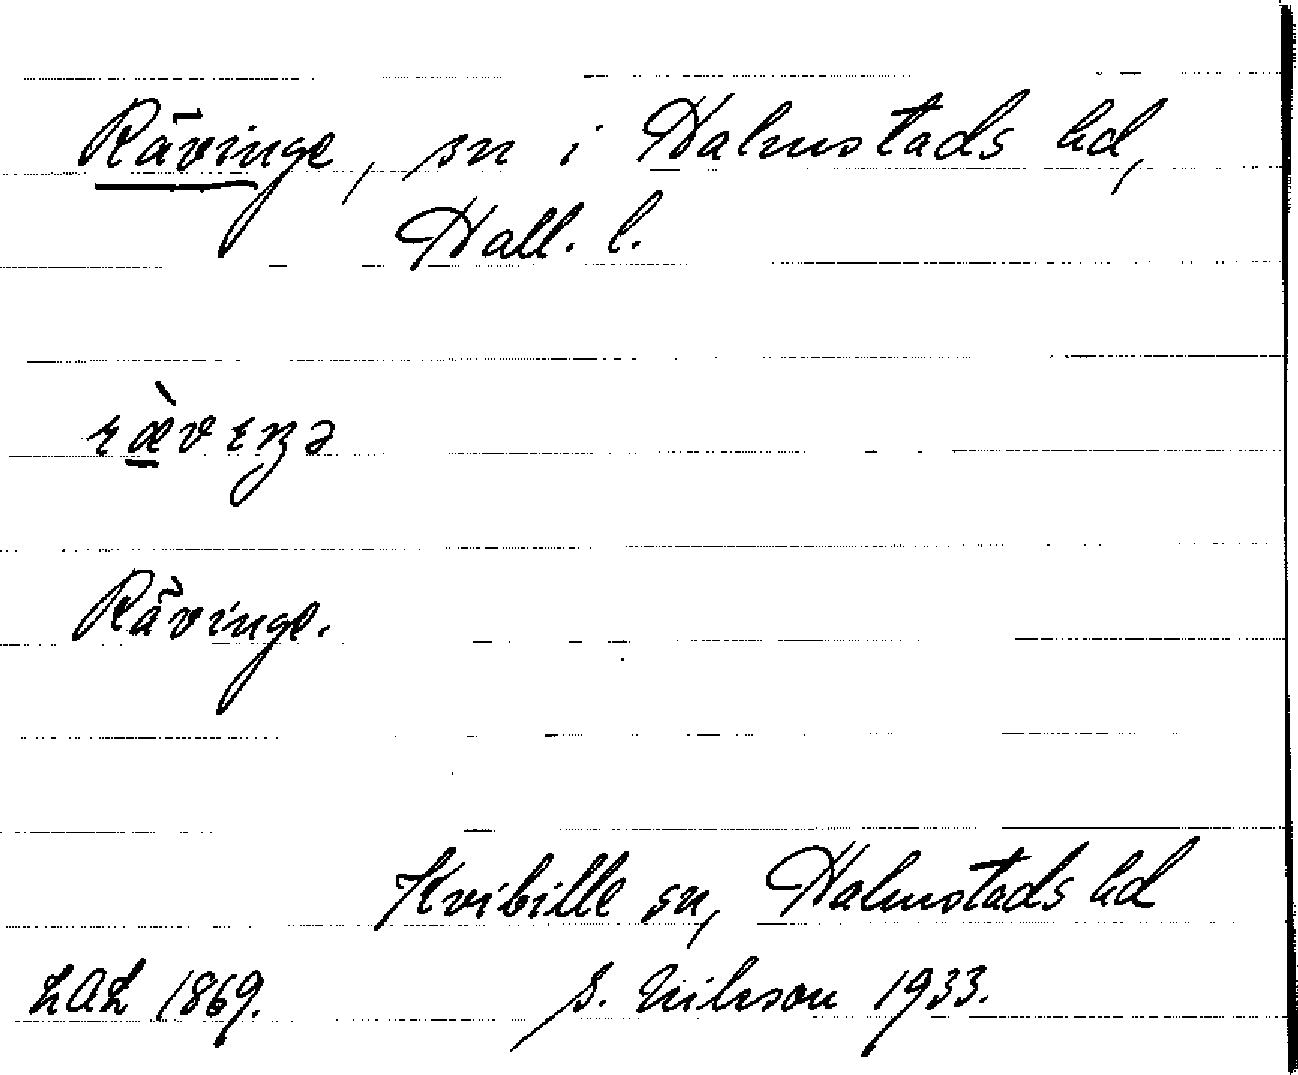 Rävinge, sn i Halmstads hd,
Hall. l.
Rävinge.
Kvibille sn, Halmstads hd
LAL 1869. S. Nilsson 1933.